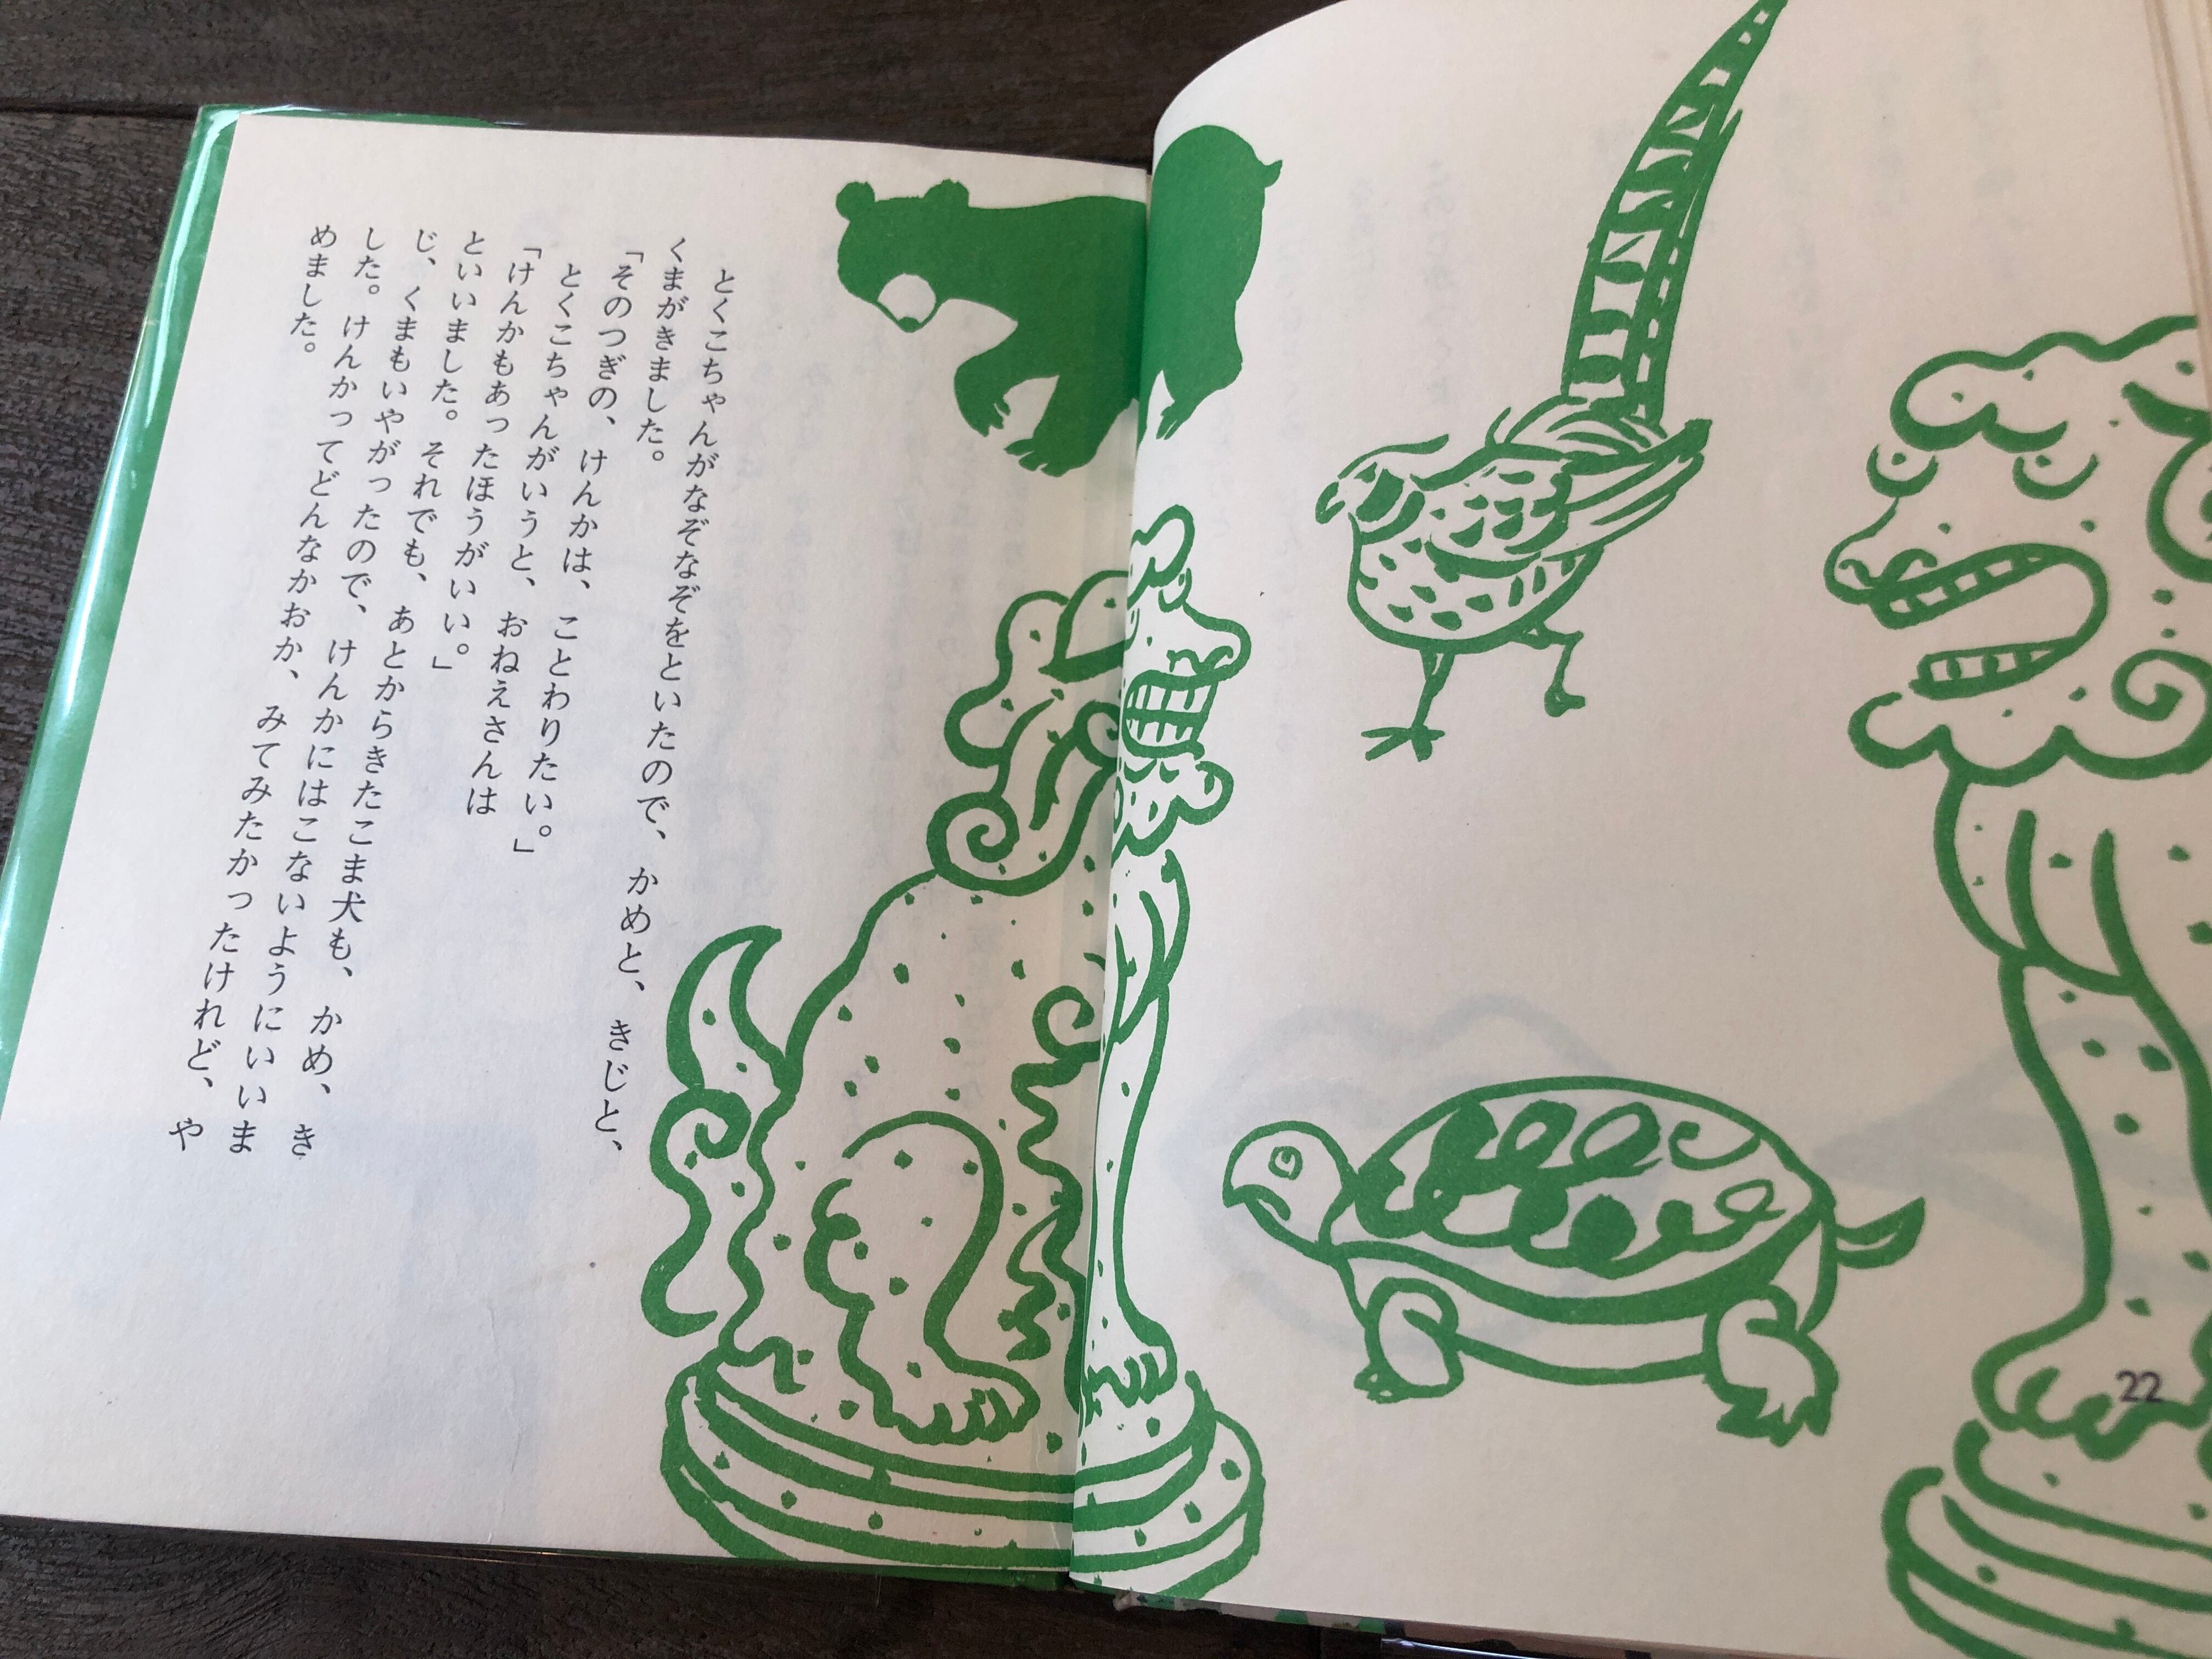 とくこちゃんがなぞなぞをといたので、かめと、きじと、
くまがきました。
「そのつぎの、けんかは、ことわりたい。」
とくこちゃんがいうと、おねえさんは
「けんかもあったほうがいい。」
といいました。それでも、あとからきたこま犬も、かめ、き
じ、くまもいやがったので、けんかにはこないようにいいま
した。けんかってどんなかおか、みてみたかったけれど、や
めました。
22